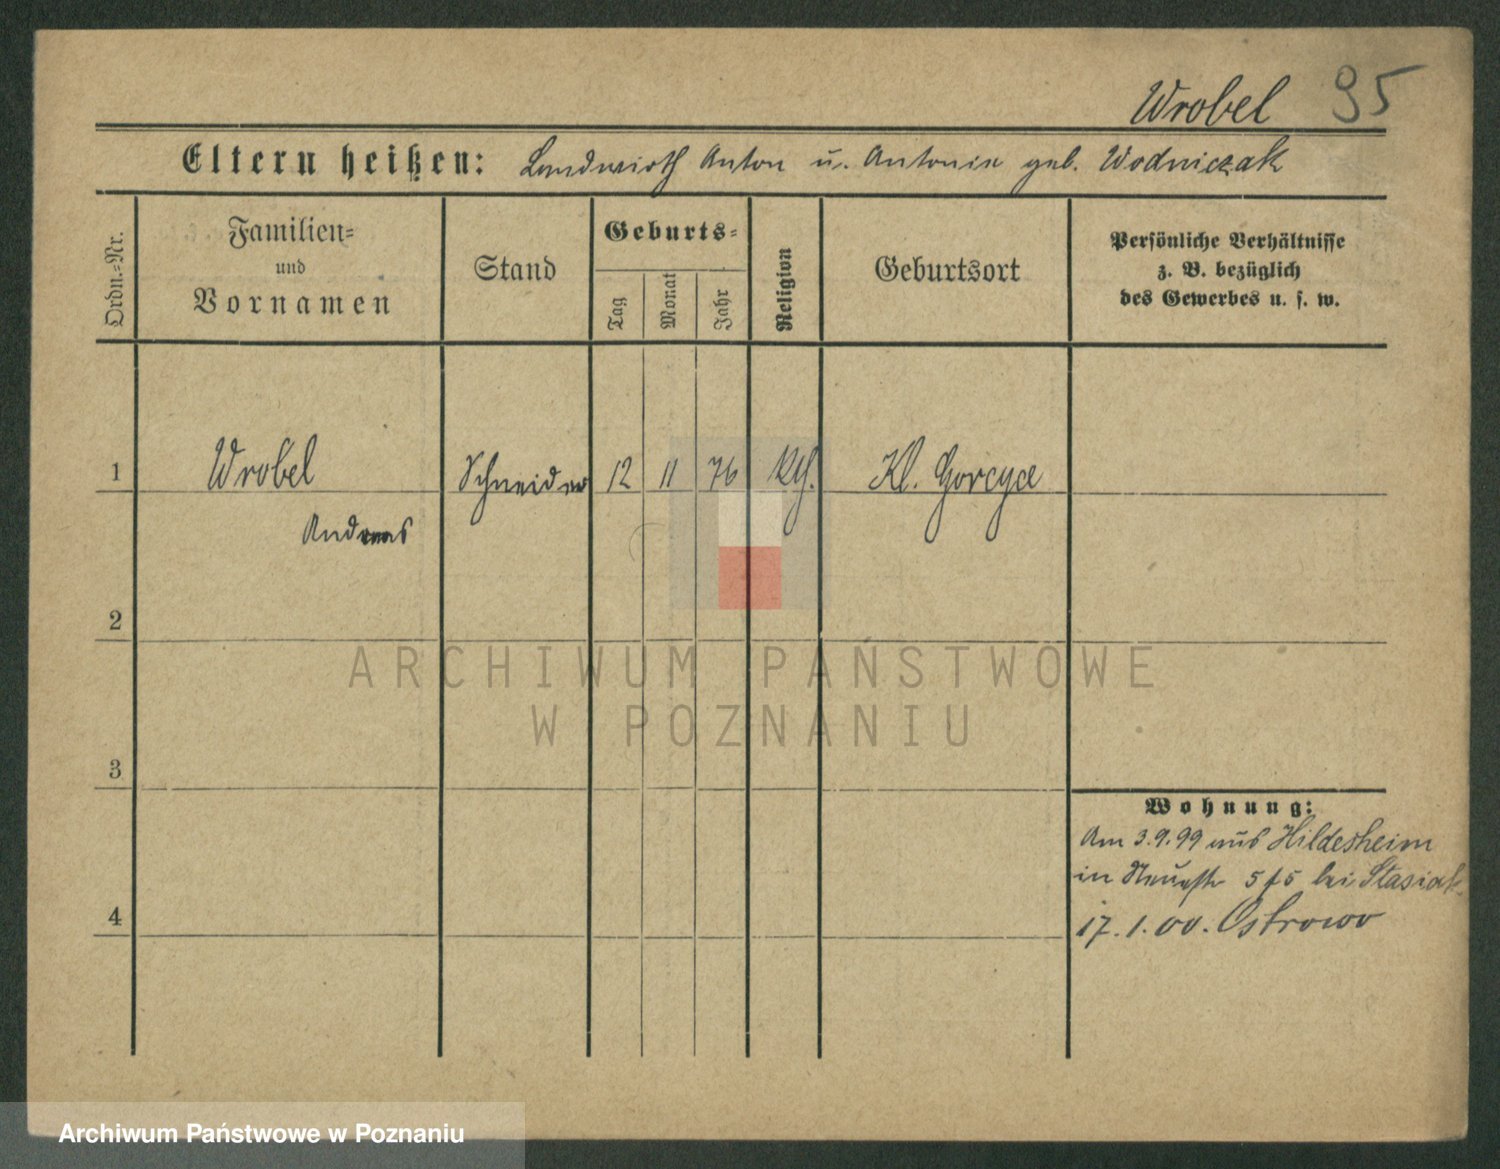 Wrobel 95
Eltern heißen: Landwirth Anton u. Antonie geb. Wodniczak
Ordn.-Nr.
Familien-
und
Vornamen
Stand
Geburts-
Tag
Monat
Jahr
Religion
Geburtsort
Persönliche Verhältnisse
z. B. bezüglich
des Gewerbes u. s. w.
1 Wrobel Schneider 12 11 76 kth. Kl. Gorcyce
Andreas
2
ARCHIWUM PAŃSTWOWE
W POZNANIU
3
Wohnung:
Am 3.9.99 aus Hildesheim
in Neuestr 5/5 bei Stasiak
4
17.1.00. Ostrowo
Archiwum Państwowe w Poznaniu